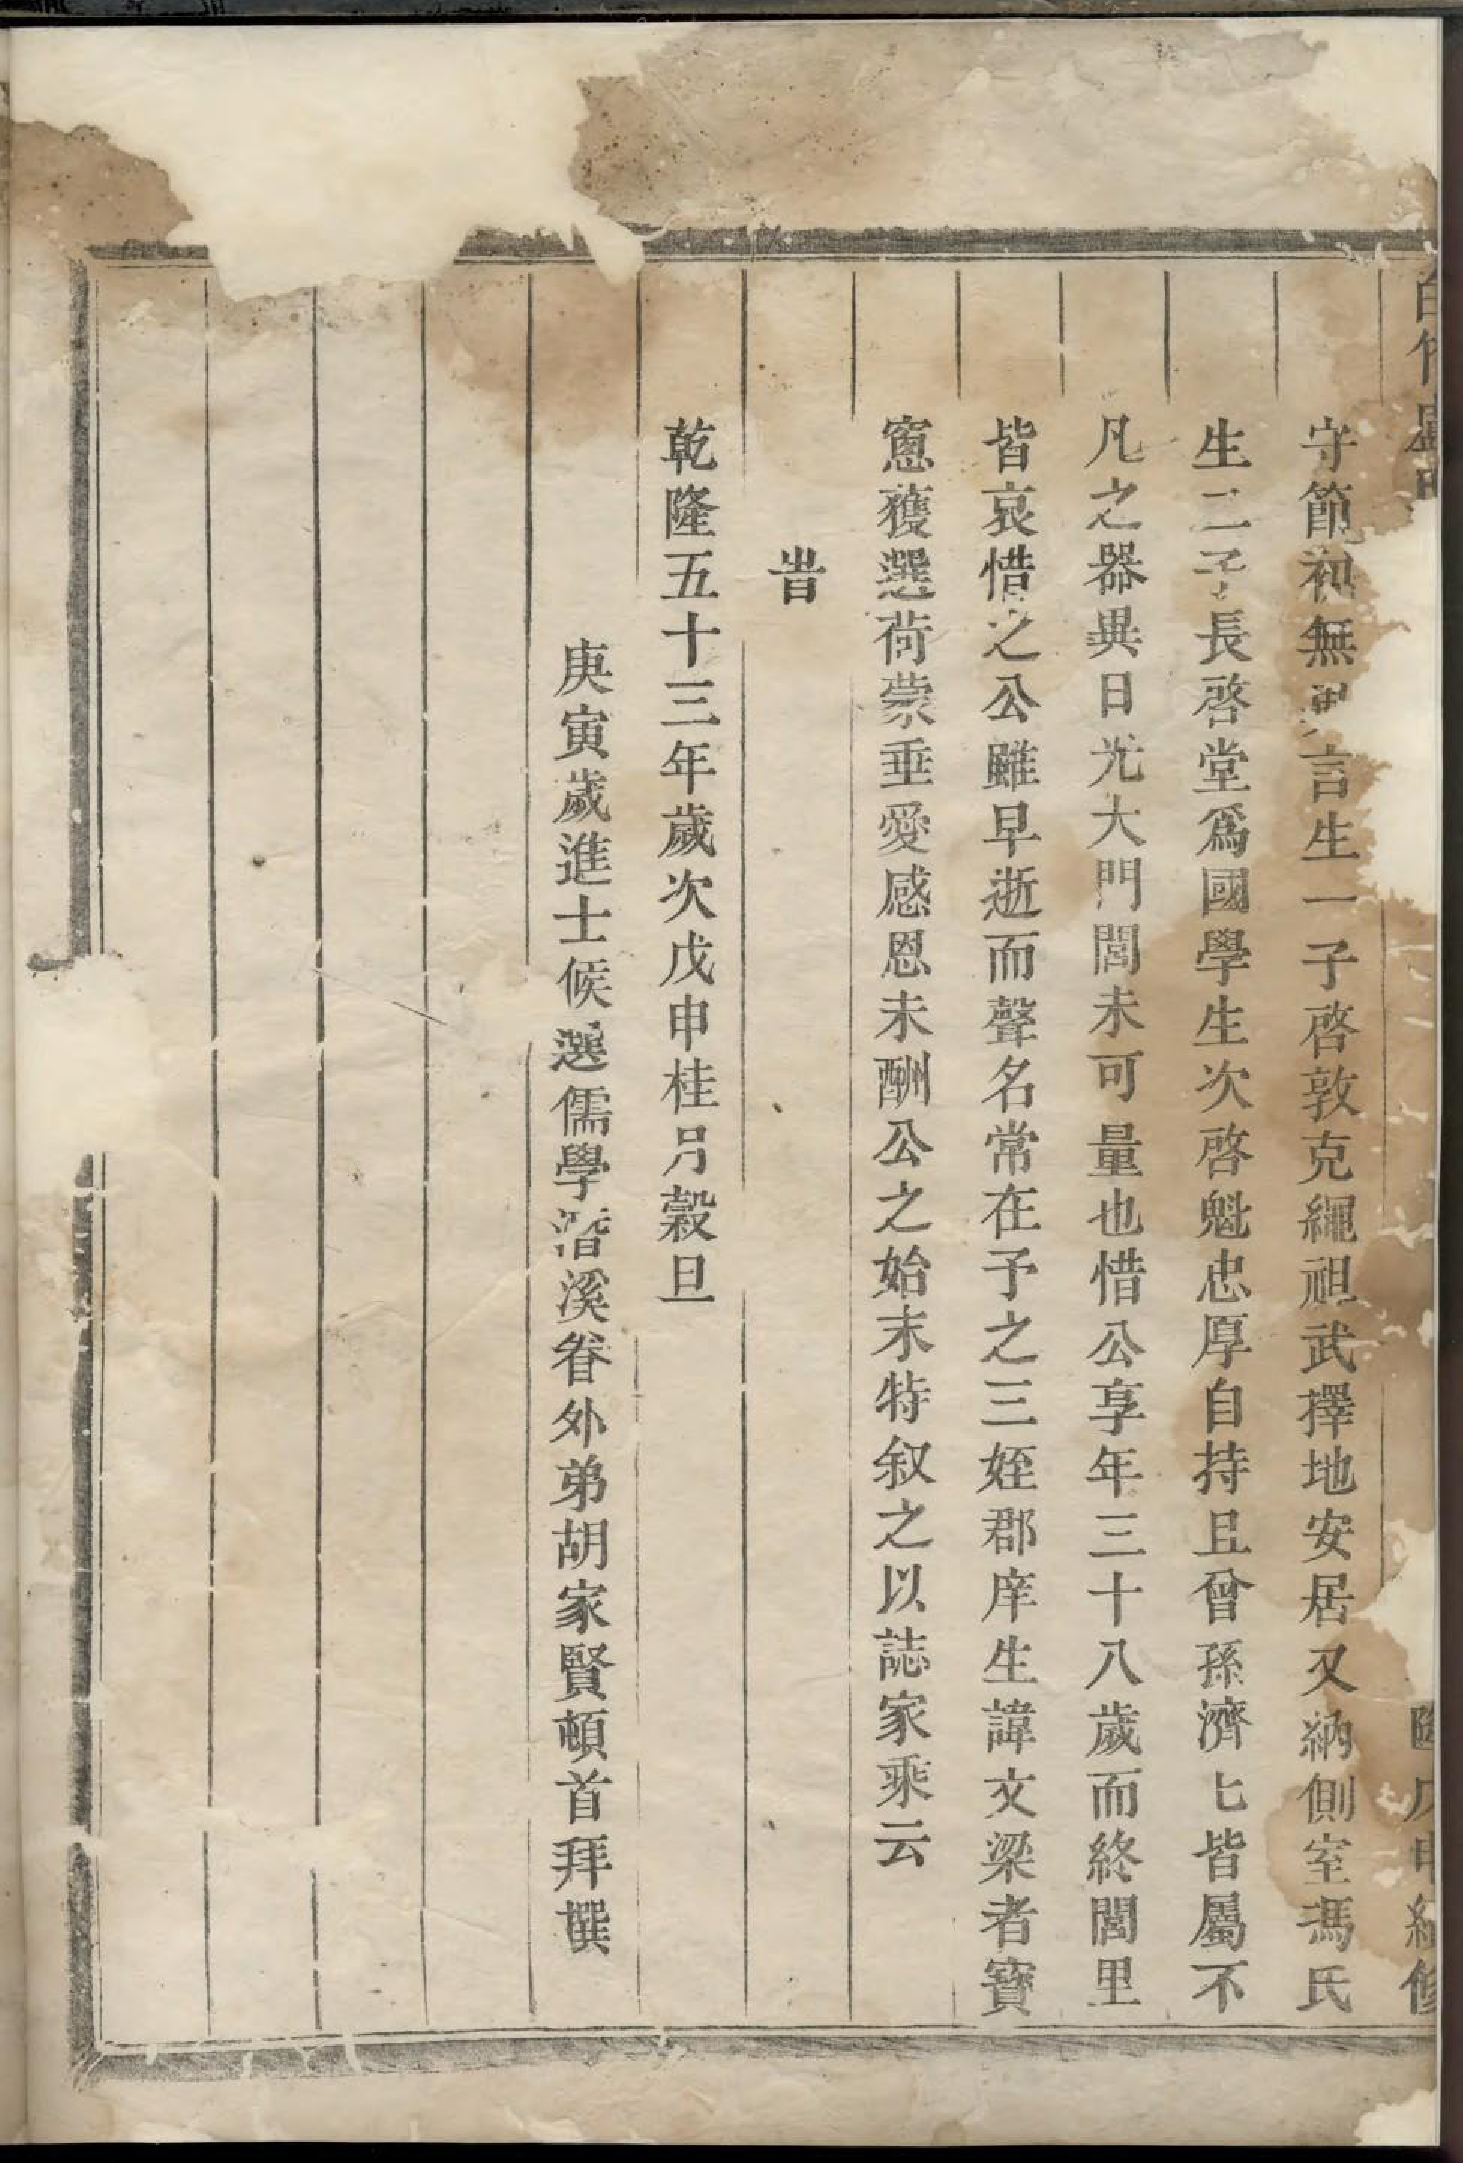 守節初無異言生一子啓敦克繩祖武擇地安居又納側室馮氏
生二子長啓堂爲國學生次啓魁忠厚自持且曾孫濟匕皆屬不
凡之器異日光大門閭未可量也惜公享年三十八歲而終閭里
皆哀惜之公雖早逝而聲名常在予之三姪郡庠生諱文梁者寶
窻獲選荷蒙垂愛感恩未酬公之始末特叙之以誌家乘云
旹
乾隆五十三年歲次戊申桂月穀旦
庚寅歲進士候選儒學濳溪眷外弟胡家賢頓首拜撰